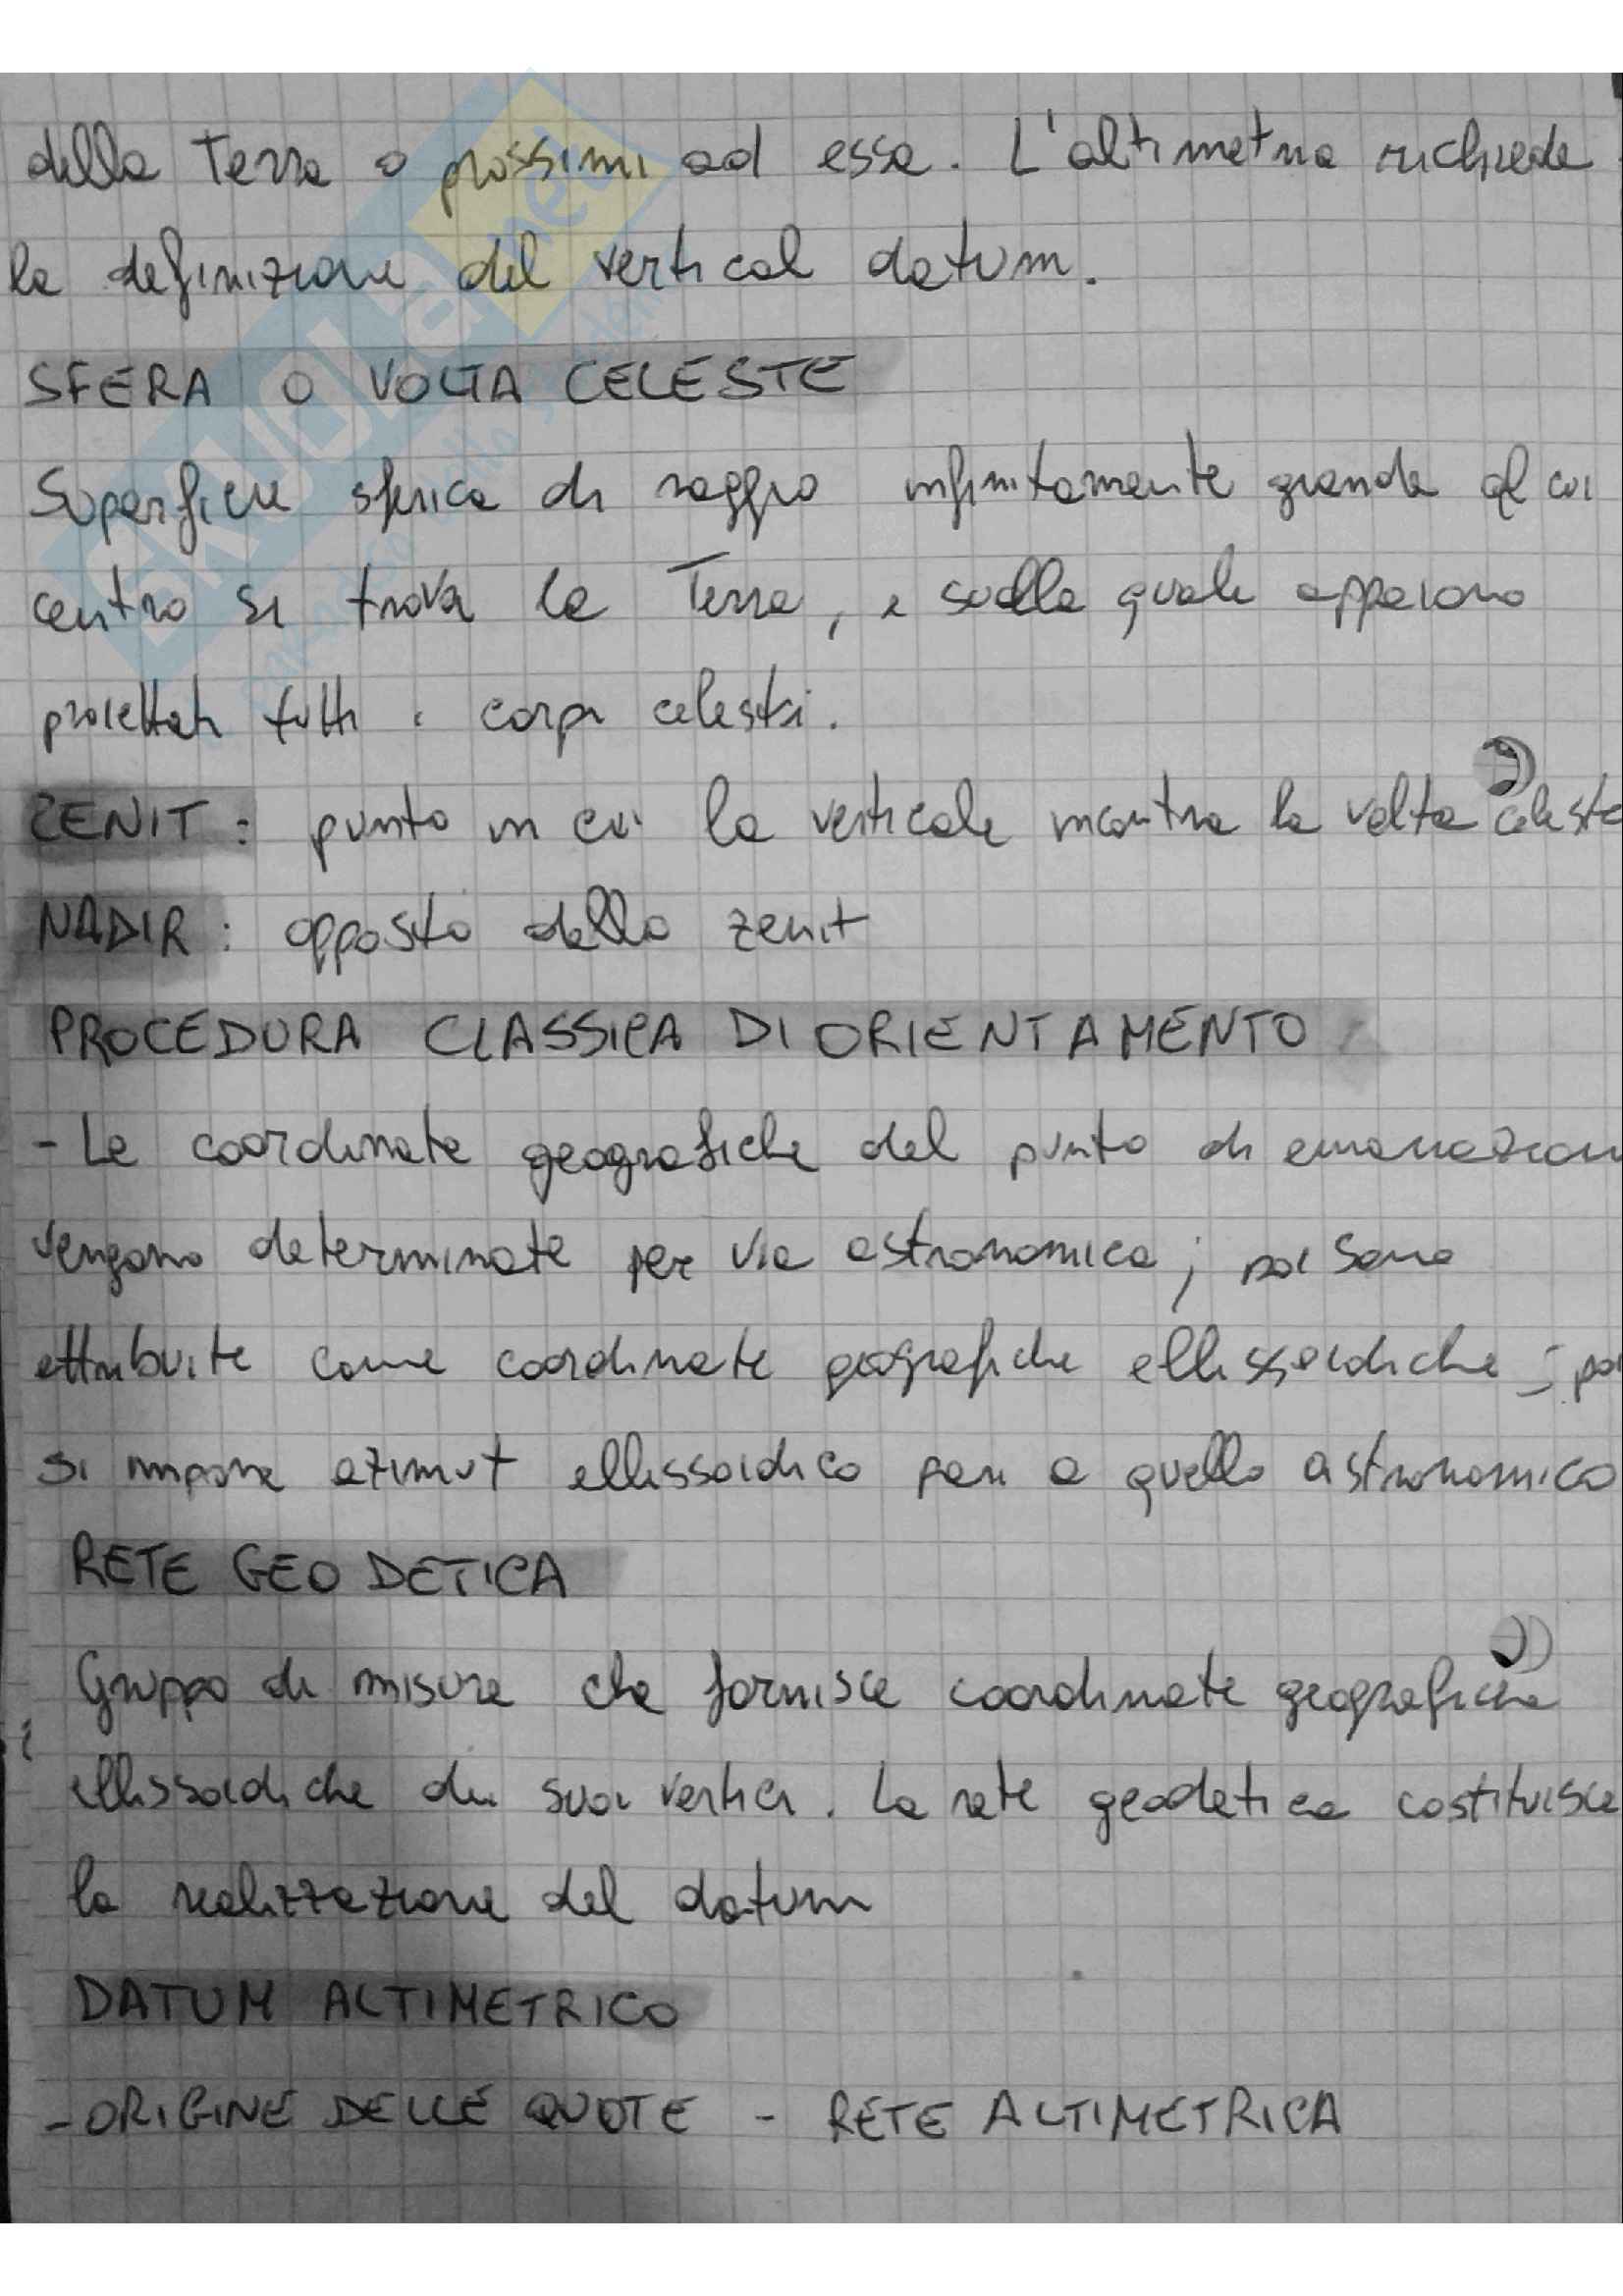 della Terra o prossimi ad essa. L'altimetria richiede
la definizione del vertical datum.
SFERA O VOLTA CELESTE
Superficie sferica di raggio infinitamente grande al cui
centro si trova la Terra, e sulla quale appaiono
proiettati tutti i corpi celesti.
ZENIT: punto in cui la verticale incontra la volta celeste
NADIR: opposto dello zenit
PROCEDURA CLASSICA DI ORIENTAMENTO
- Le coordinate geografiche del punto di emanazion
vengono determinate per via astronomica; poi sono
attribuite come coordinate geografiche ellissoidiche; poi
si impone azimut ellissoidico pari a quello astronomico
RETE GEODETICA
Gruppo di misure che fornisce coordinate geografiche
ellissoidiche dei suoi vertici. La rete geodetica costituisce
la realizzazione del datum
DATUM ALTIMETRICO
- ORIGINE DELLE QUOTE - RETE ALTIMETRICA
SKUOLA.net